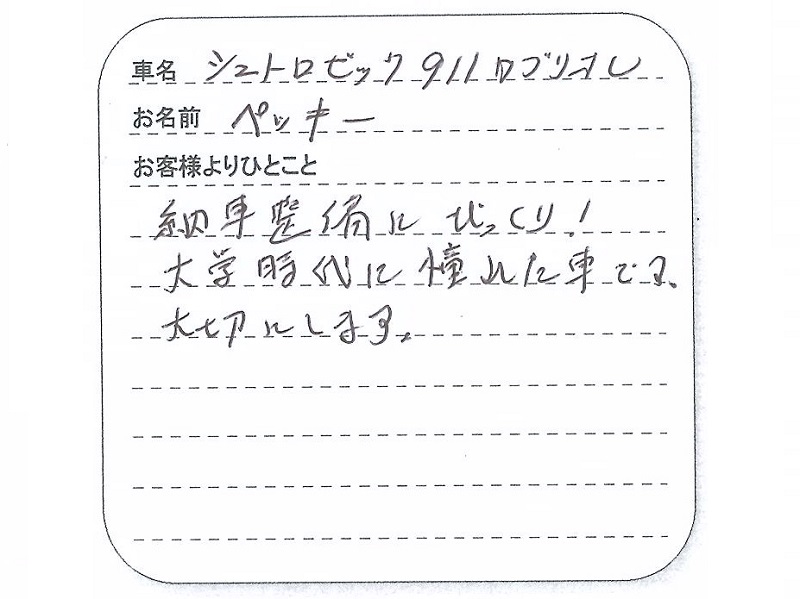 車名 シュトロゼック911カブリオレ
お名前 ペッキー
お客様よりひとこと
納車整備にびっくり!
大学時代に憧れた車です。
大切にします。